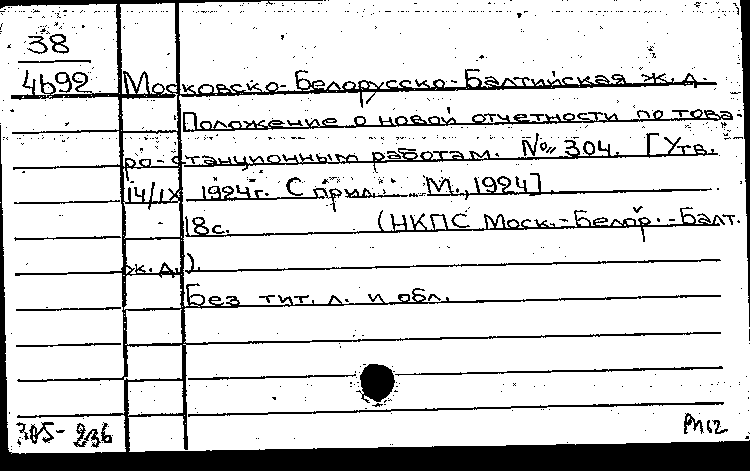 38
4692 Московско-Белорусско-Балтийская ж.д.
Положение о новой отчетности по това-
ро-станционным работам. №304. [Утв.
14/IX 1924г. С прил. М., 1924].
18с. (НКПС Моск.-Белор.-Балт.
ж.д.).
Без тит. л. и обл.
305-236